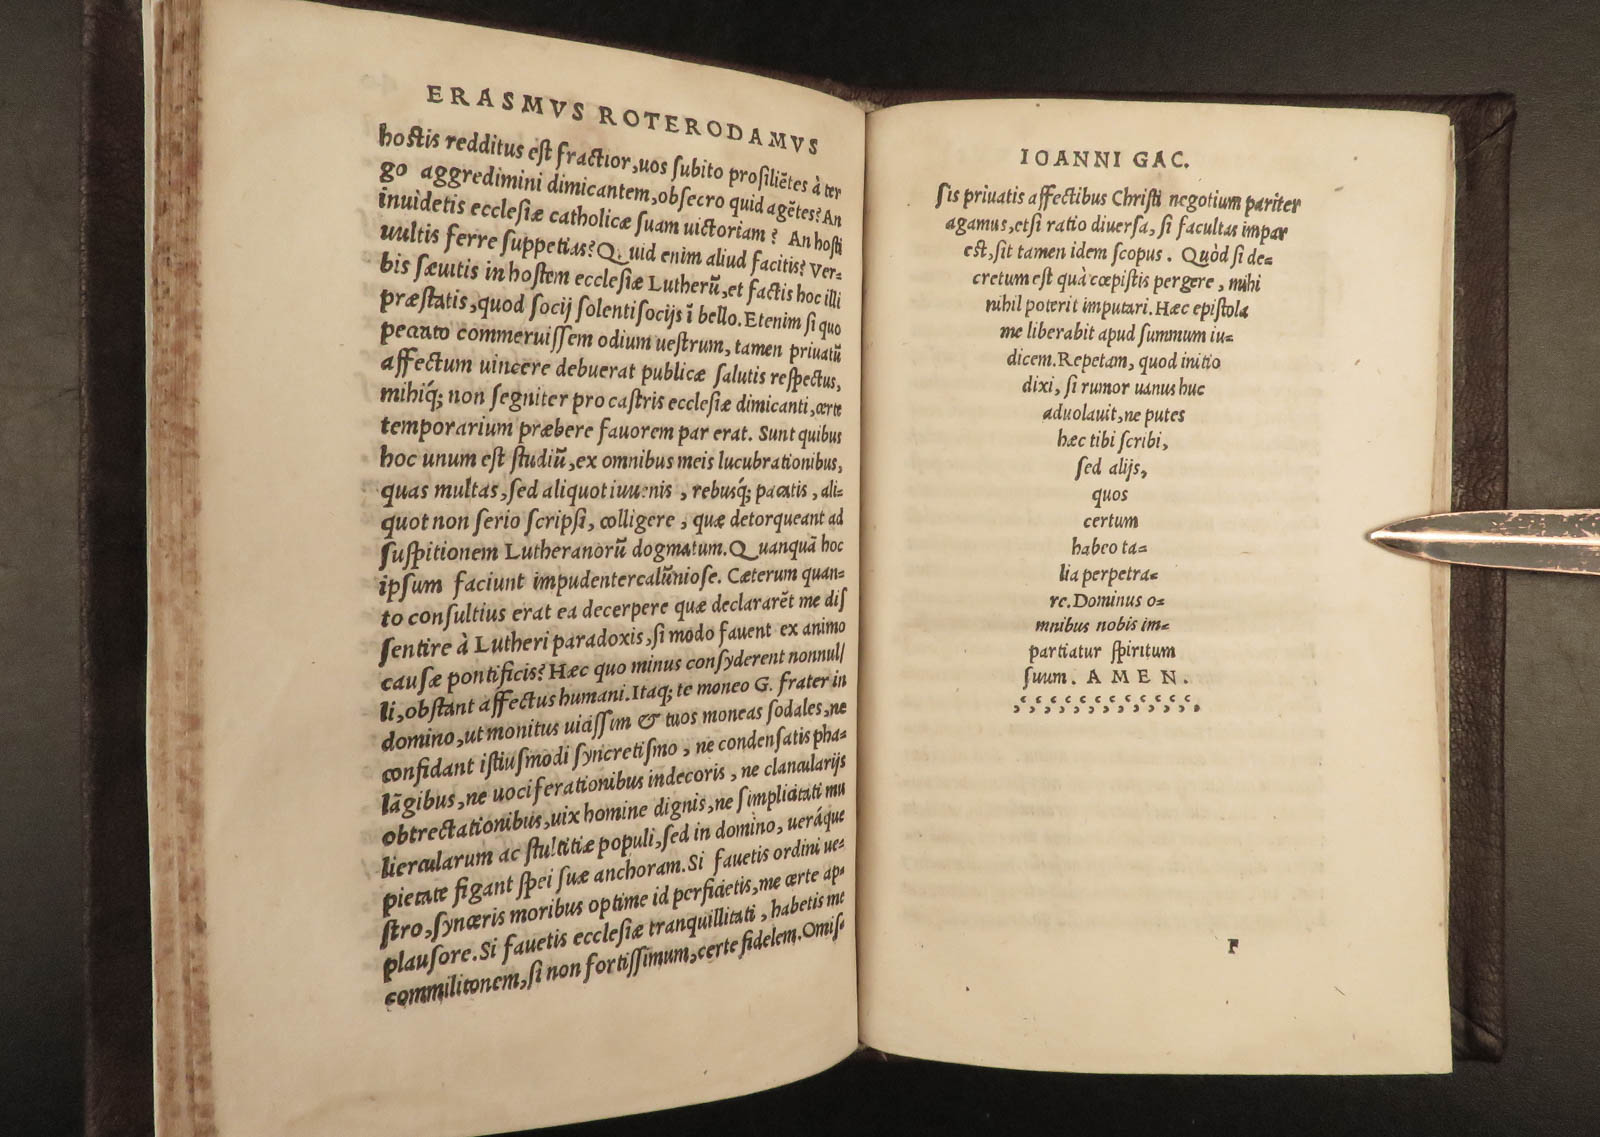 ERASMVS ROTERODAMVS
hostis redditus est fractior, uos subito prosiliẽtes à ter
go aggredimini dimicantem, obsecro quid agẽtes? An
inuidetis ecclesiæ catholicæ suam uictoriam? An hosti
uultis ferre suppetias? Quid enim aliud facitis? Ver-
bis sæuitis in hostem ecclesiæ Lutherũ, et factis hoc illi
præstatis, quod socij solent socijs ĩ bello. Etenim si quo
peccato commeruissem odium uestrum, tamen priuatũ
affectum uincere debuerat publicæ salutis respectus,
mihiq; non segniter pro castris ecclesiæ dimicanti, certe
temporarium præbere fauorem par erat. Sunt quibus
hoc unum est studiũ, ex omnibus meis lucubrationibus,
quas multas, sed aliquot iuuenis, rebusq; pacatis, ali-
quot non serio scripsi, colligere, quæ detorqueant ad
suspitionem Lutheranorũ dogmatum. Quanquã hoc
ipsum faciunt impudenter calũniose. Cæterum quan-
to consultius erat ea decerpere quæ declararẽt me dis
sentire à Lutheri paradoxis, si modo fauent ex animo
causæ pontificis? Hæc quo minus consyderent nonnul/
li, obstant affectus humani. Itaq; te moneo G. frater in
domino, ut monitus uicissim & tuos moneas sodales, ne
confidant istiusmodi syncretismo, ne condensatis pha-
lãgibus, ne uociferationibus indecoris, ne clancularijs
obtrectationibus, uix homine dignis, ne simplicitati mu
liercularum ac stultitiæ populi, sed in domino, ueráque
pietate figant spei suæ anchoram. Si fauetis ordini ue-
stro, synceris moribus optime id perficietis, me certe ap-
plausore. Si fauetis ecclesiæ tranquillitati, habetis me
commilitonem, si non fortissimum, certe fidelem. Omis-
IOANNI GAC.
sis priuatis affectibus Christi negotium pariter
agamus, etsi ratio diuersa, si facultas impar
est, sit tamen idem scopus. Quòd si de-
cretum est quà cœpistis pergere, mihi
nihil poterit imputari. Hæc epistola
me liberabit apud summum iu-
dicem. Repetam, quod initio
dixi, si rumor uanus huc
aduolauit, ne putes
hæc tibi scribi,
sed alijs,
quos
certum
habeo ta-
lia perpetra-
re. Dominus o-
mnibus nobis im-
partiatur spiritum
suum. AMEN.
F